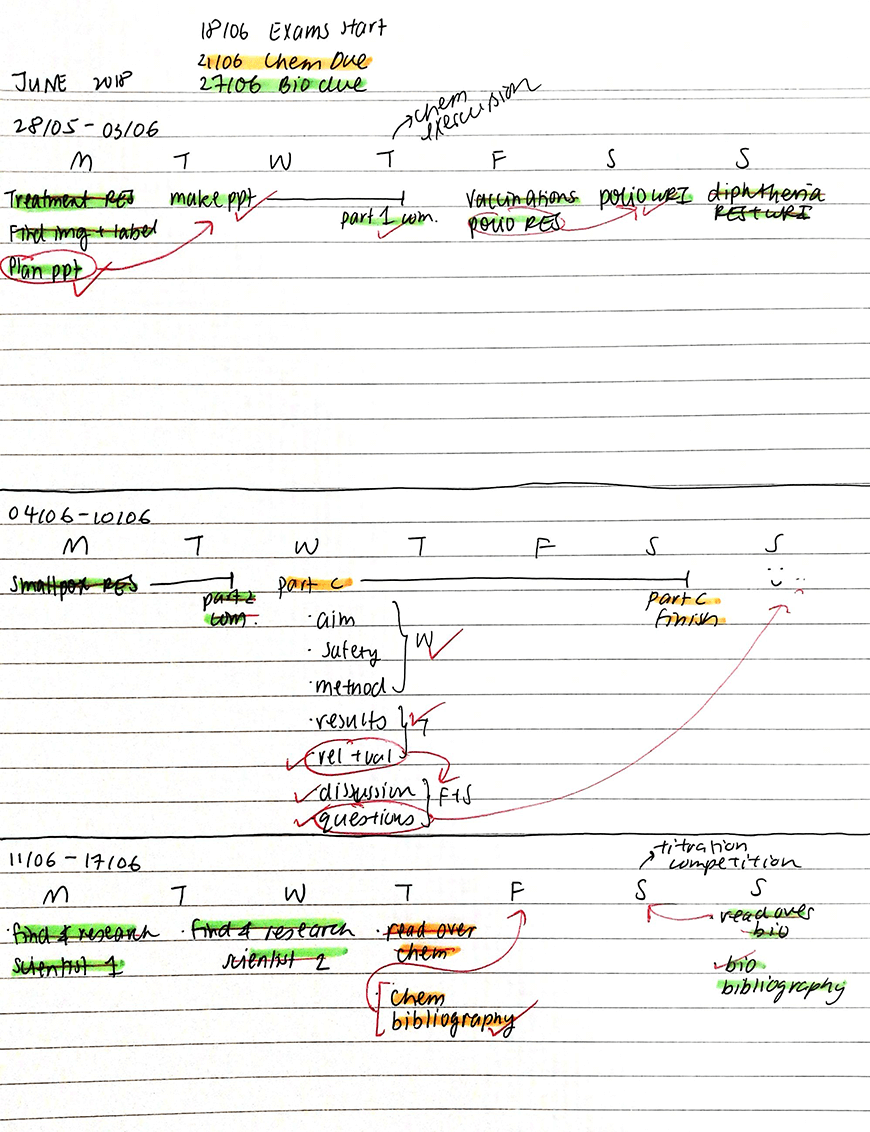 18/06 Exams start
21/06 Chem Due
27/06 Bio due
JUNE 2018
28/05 - 03/06
chem
exercusion
M T W T F S S
Treatment RES make ppt vaccinations polio WRI diphtheria
part 1 com. polio RES RES + WRI
Find img + label
Plan ppt
04/06 - 10/06
M T W T F S S
Smallpox RES part c
part 2 part c
com. finish
· aim
· safety W
· method
· results T
· rel + val
· discussion F+S
· questions
11/06 - 17/06
titration
competition
M T W T F S S
· find & research · find & research · read over · read over
scientist 1 scientist 2 chem bio
· bio
bibliography
· chem
bibliography